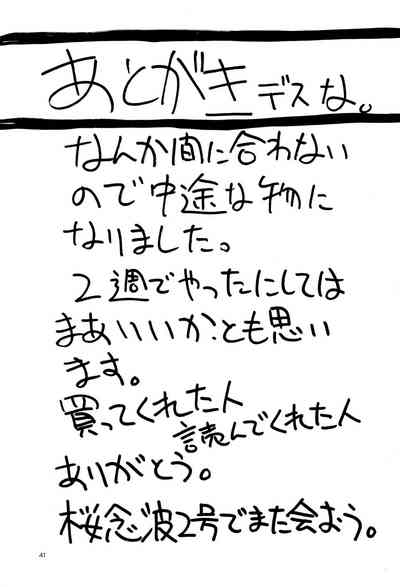 あとがきデスな。
なんか間に合わない
ので中途な物に
なりました。
2週でやったにしては
まあいいか、とも思い
ます。
買ってくれた人
読んでくれた人
ありがとう。
桜念波2号でまた会おう。
41